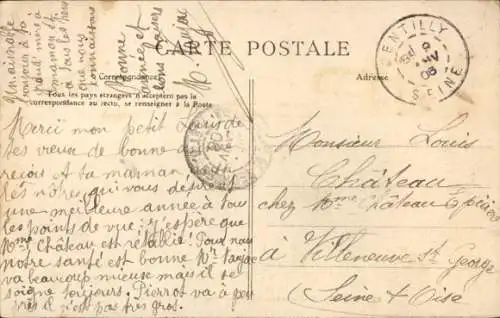 CARTE POSTALE
Correspondance
Adresse
Tous les pays étrangers n'acceptent pas la
correspondance au recto, se renseigner à la Poste
GENTILLY
SEINE
Bonne
année et
bons baisers
M.
à tous les
que nous
connaissons
Merci mon petit Louis de
tes vieux de bonne a
reçois et ta maman
les nôtres qui vous désirent
une meilleure année à tous
les points de vue; j'espère que
Mme Château est rétablie! Pour nous
notre santé est bonne Mr
va beaucoup mieuse mais il se
soigne toujours. Pierrot va à peu
près il n'est pas très gros.
Monsieur Louis
Château
chez Mme Château Epicière
à Villeneuve St George
(Seine & Oise)